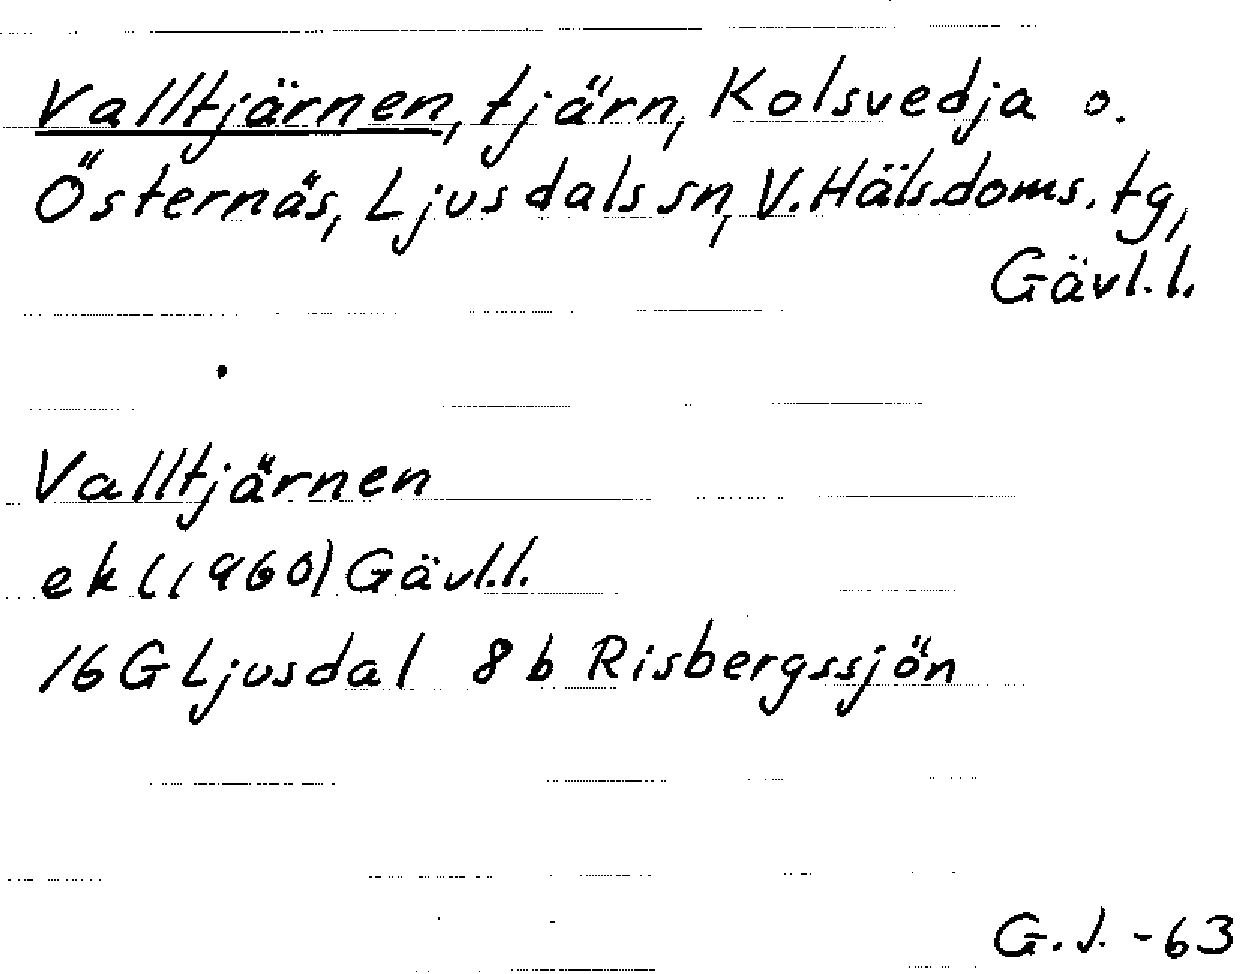 Valltjärnen, tjärn, Kolsvedja o.
Östernäs, Ljusdals sn, V. Häls.doms. tg,
Gävl. l.
Valltjärnen
ek l (1960) Gävl.l.
16G Ljusdal 8 b Risbergssjön
G. J. -63